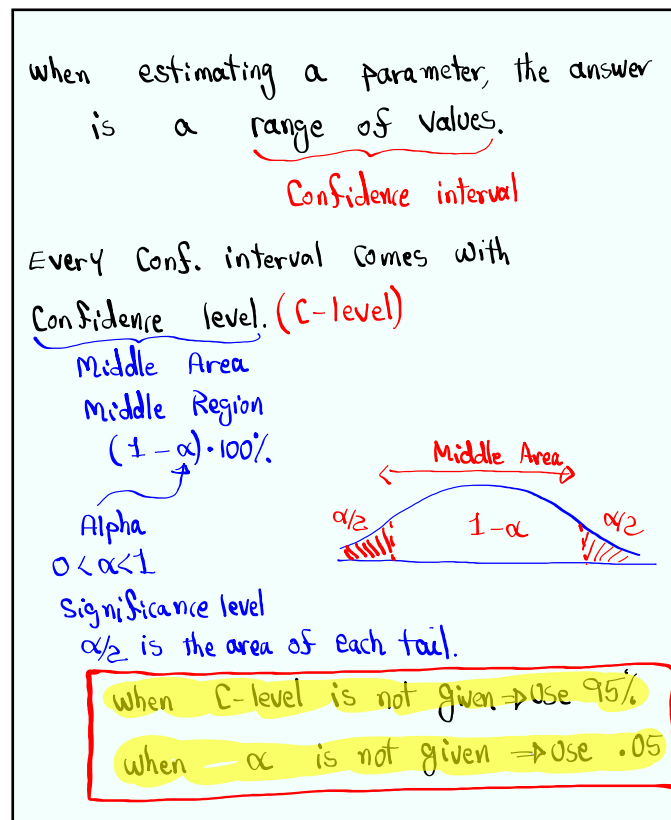 when estimating a parameter, the answer
is a range of values.
Confidence interval
Every Conf. interval comes with
Confidence level. (C-level)
Middle Area
Middle Region
(1-α)·100%
Alpha
0<α<1
Significance level
α/2 is the area of each tail.
Middle Area
α/2 1-α α/2
when C-level is not given ⇒ Use 95%
when α is not given ⇒ Use .05